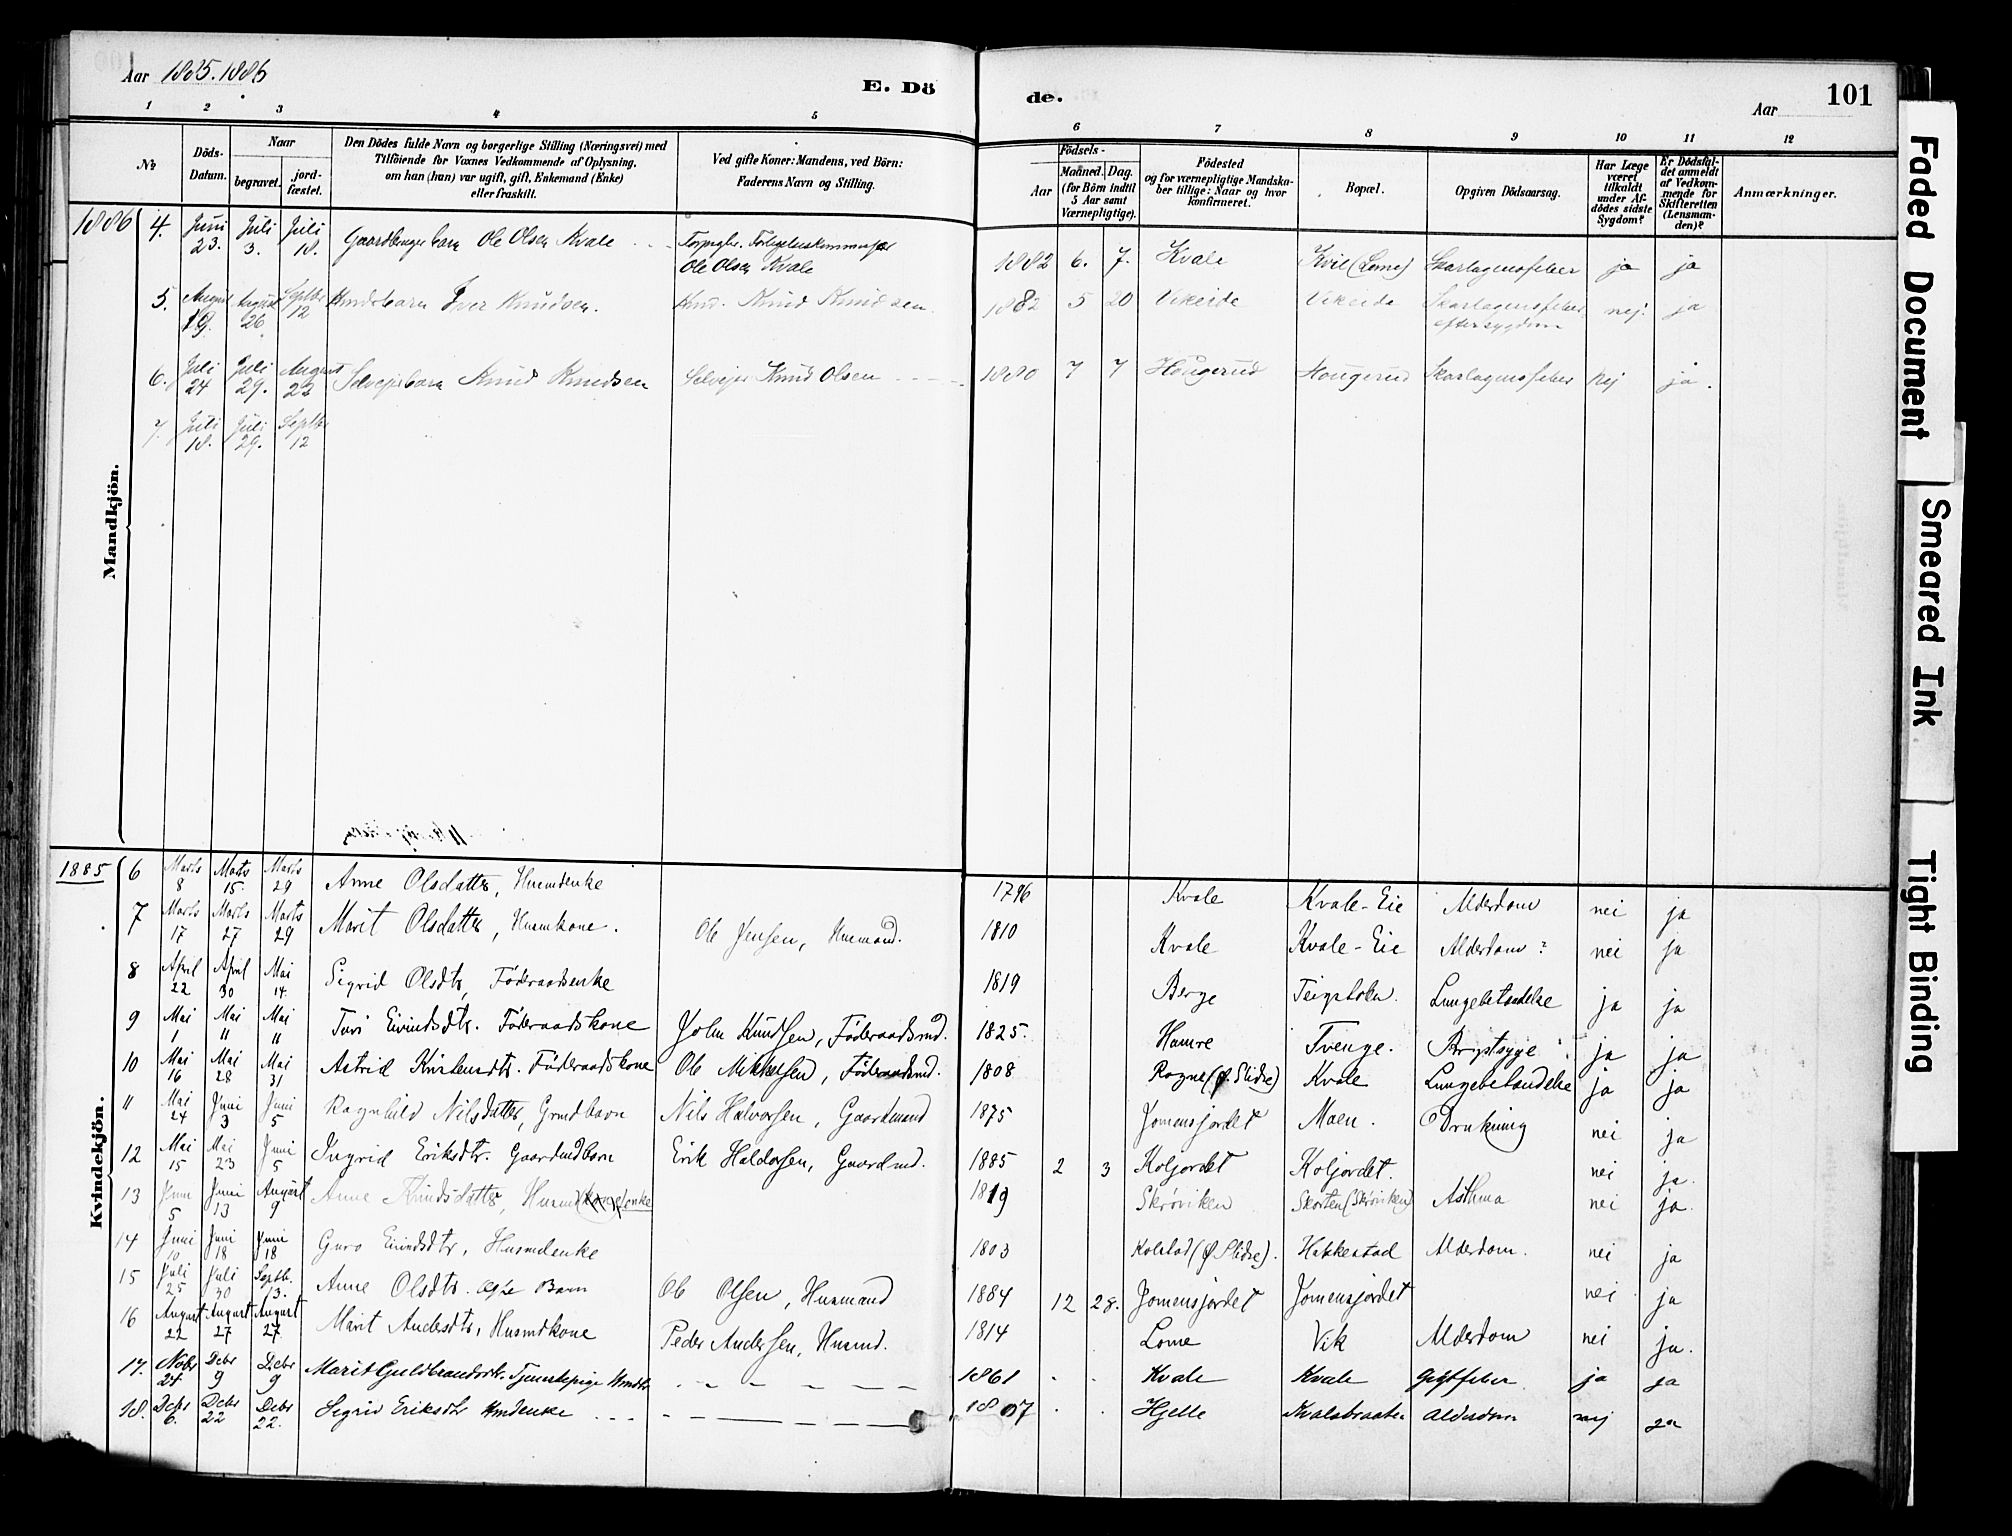 Aar 1885.1886
E. Dö
de.
Aar
101
1 2 3 4 5 6 7 8 9 10 11 12
No
Döds-Datum.
Naar
begravet.
jord-fæstet.
Den Dödes fulde Navn og borgerlige Stilling (Næringsvei) med
Tilföiende for Voxnes Vedkommende af Oplysning,
om han (hun) var ugift, gift, Enkemand (Enke)
eller fraskilt.
Ved gifte Koner: Mandens, ved Börn:
Faderens Navn og Stilling.
Födsels-
Aar
Maaned. Dag.
(for Börn indtil
5 Aar samt
Værnepligtige).
Födested
og for værnepligtige Mandska-
ber tillige: Naar og hvor
konfirmeret.
Bopæl.
Opgiven Dödsaarsag.
Har Læge
været
tilkaldt
under Af-
dödes sidste
Sygdom?
Er Dödsfal-
det anmeldt
af Vedkom-
mende for
Skifteretten
(Lensman-
den)?
Anmærkninger.
Mandkjön.
1886 4. Juni 23. Juli 3. Juli 18. Ole Olsen Kvale
Ole Olsen Kvale 1882 6. 7. Kvale Kvie (Lome) Skarlagensfeber ja ja
5. August 19. August 26 Septbr 12 Iver Knudsen. Knud Knudsen 1882 5 20 Vikeide Vikeide Skarlagensfeber eftersygdom nej. ja
6. Juli 24 Juli 29. August 22 Selveierbarn Knud Knudsen Selveier Knud Olsen 1880 7 7 Hougerud Hougerud Skarlagensfeber Nej ja.
7. Juli 18. Juli 29. Septbr 12
Kvindekjön.
1885 6 Marts 8 Marts 15 Marts 29 Anne Olsdatter, Husmdenke 1796 Kvale Kvale-Eie Alderdom nei ja
7 Marts 17 Marts 27 Marts 29 Marit Olsdatter, Husmkone. Ole Jensen, Husmand. 1810 Kvale Kvale-Eie Alderdom? nei ja
8 April 22 April 30 Mai 14. Sigrid Olsdtr, Föderaadsenke 1819 Berge Lungebetændelse ja ja
9 Mai 1 Mai 11 Mai 11 Turi Eivindsdtr. Föderaadskone John Knudsen, Föderaadsmd. 1825. Hamre Tvenge. Brystsyge ja ja
10 Mai 16 Mai 28 Mai 31 Astrid Kristensdtr. Föderaadskone Ole Mikkelsen, Föderaadsmd. 1808 Rogne (Ø. Slidre) Kvale Lungebetændelse ja ja
11 Mai 24 Juni 3 Juni 5 Ragnhild Nilsdatter, Grmdbarn Nils Halvorsen, Gaardmand 1875 Jomensjordet Moen. Drukning nei ja
12 Mai 15 Mai 23 Juni 5 Ingrid Eriksdtr. Gaardmdbarn Erik Haldorsen, Gaardmd. 1885 2 3 Koljordet Koljordet. nei ja.
13 Juni 5 Juni 13 August 9 Anne Knudsdatter, enke 1819 Skrøviken Skorten (Skrøviken) Asthma nei ja.
14 Juni 10 Juni 18 Juni 18 Guro Eivindsdtr, Husmdenke 1803 Kolstad (Ø Slidre). Hakkestad Alderdom. nei ja
15 Juli 25 Juli 30 Septb. 13. Anne Olsdtr. Ægte Barn Ole Olsen, Husmand 1884 12 28. Jomensjordet Jomensjordet nei ja
16 August 22 August 27 August 27 Marit Andersdtr, Husmdkone Peder Andersen, Husmd. 1814 Lome Vik Alderdom nei ja.
17. Novbr 24 Debr 9 Debr 9 Marit Guldbrandsdtr. Tjenestepige 1861 Kvale Kvale Gigtfeber ja ja
18. Debr 6. Debr 22 Debr 22. Sigrid Eriksdtr Hmdenke 1807 Hjelle Kvalebraaten Alderdom nej ja
Faded Document
Smeared Ink
Tight Binding